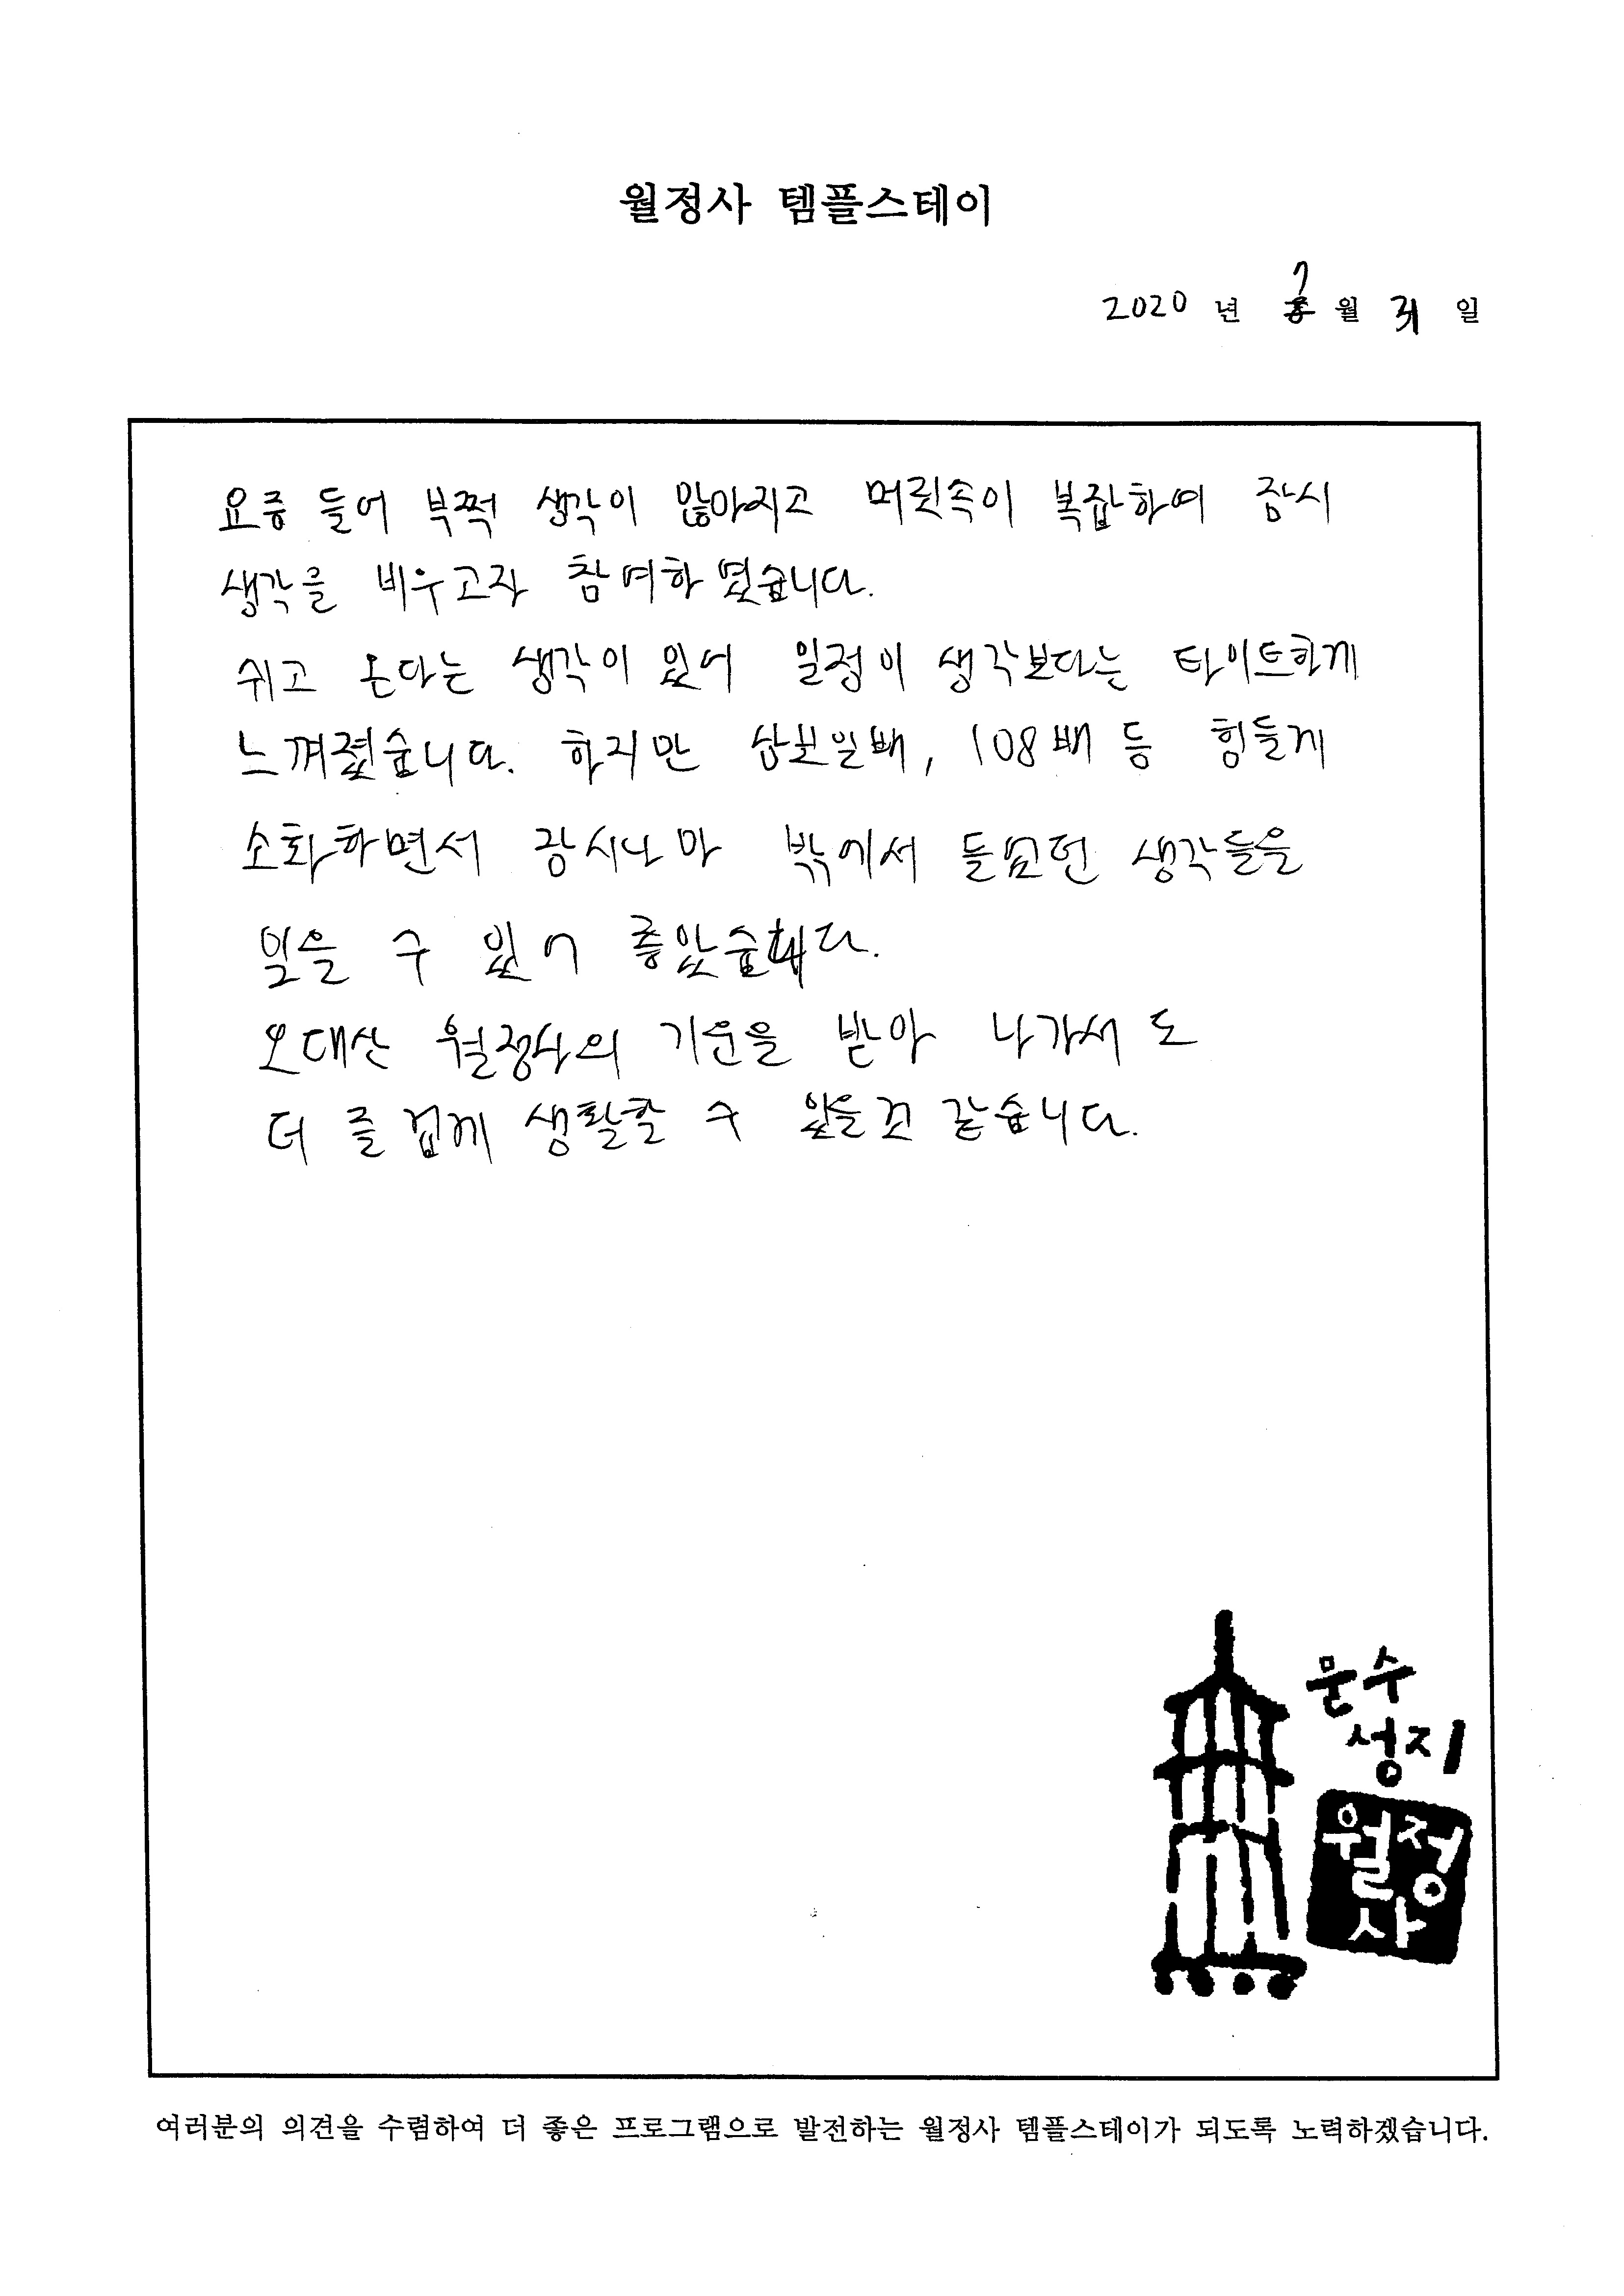 월정사 템플스테이
2020 년 7 월 31 일
요즘 들어 부쩍 생각이 많아지고 머릿속이 복잡하여 잠시
생각을 비우고자 참여하였습니다.
쉬고 온다는 생각이 있어 일정이 생각보다는 타이트하게
느껴졌습니다. 하지만 삼보일배, 108배 등 힘들게
소화하면서 잠시나마 밖에서 들었던 생각들을
잊을 수 있어 좋았습니다.
오대산 월정사의 기운을 받아 나가서도
더 즐겁게 생활할 수 있을것 같습니다.
문수
성지
월정
사
여러분의 의견을 수렴하여 더 좋은 프로그램으로 발전하는 월정사 템플스테이가 되도록 노력하겠습니다.